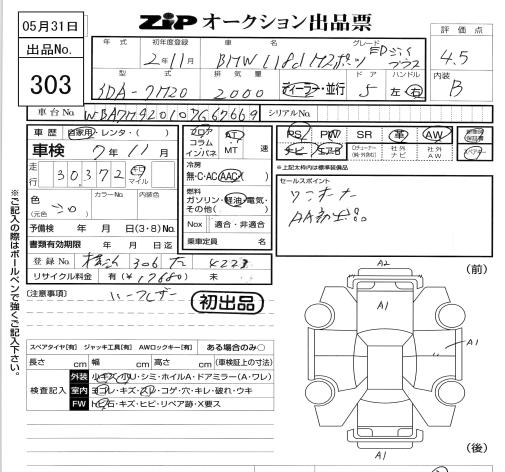 05月31日
ZIP オークション出品票
出品No.
303
年式
初年度登録
車名
グレード
評価点
2年11月
BMW 118d Mスポーツ
EDジョイ
プラス
4.5
型式
排気量
ドア
ハンドル
内装
3DA-7M20
2000
ディーラー・並行
5
左・右
B
車台No.
WBA7M920107G67669
シリアルNo.
車歴
自家用・レンタ・( )
車検
7年11月
走行
30,372
キロ
マイル
色
(元色)
シロ
カラーNo.
内装色
予備検 年 月 日(3・8)No.
書類有効期限 年 月 日迄
登録No.
4223
リサイクル料金 有(¥17680) 未
フロア
コラム
インパネ
AT
MT
速
冷房
無・C・AC・AAC
燃料
ガソリン・軽油・電気・
その他( )
Nox 適合・非適合
乗車定員 名
PS PW SR 革 AW
ナビ エアB
社外
ナビ
社外
AW
*上記太枠内は標準装備品
セールスポイント
ワンオーナー
(注意事項)
初出品
スペアタイヤ[有] ジャッキ工具[有] AWロックキー[有] ある場合のみ○
長さ cm 幅 cm 高さ cm (車検証上の寸法)
検査記入
外装 ルキズ・ホリ・シミ・ホイルA・ドアミラー(A・ワレ)
室内 ヨゴレ・キズ・スレ・コゲ・穴・キレ・破れ・ウキ
FW トビ石・キズ・ヒビ・リペア跡・X要ス
※ご記入の際はボールペンで強くご記入下さい。
(前)
A2
A1
A1
A1
(後)